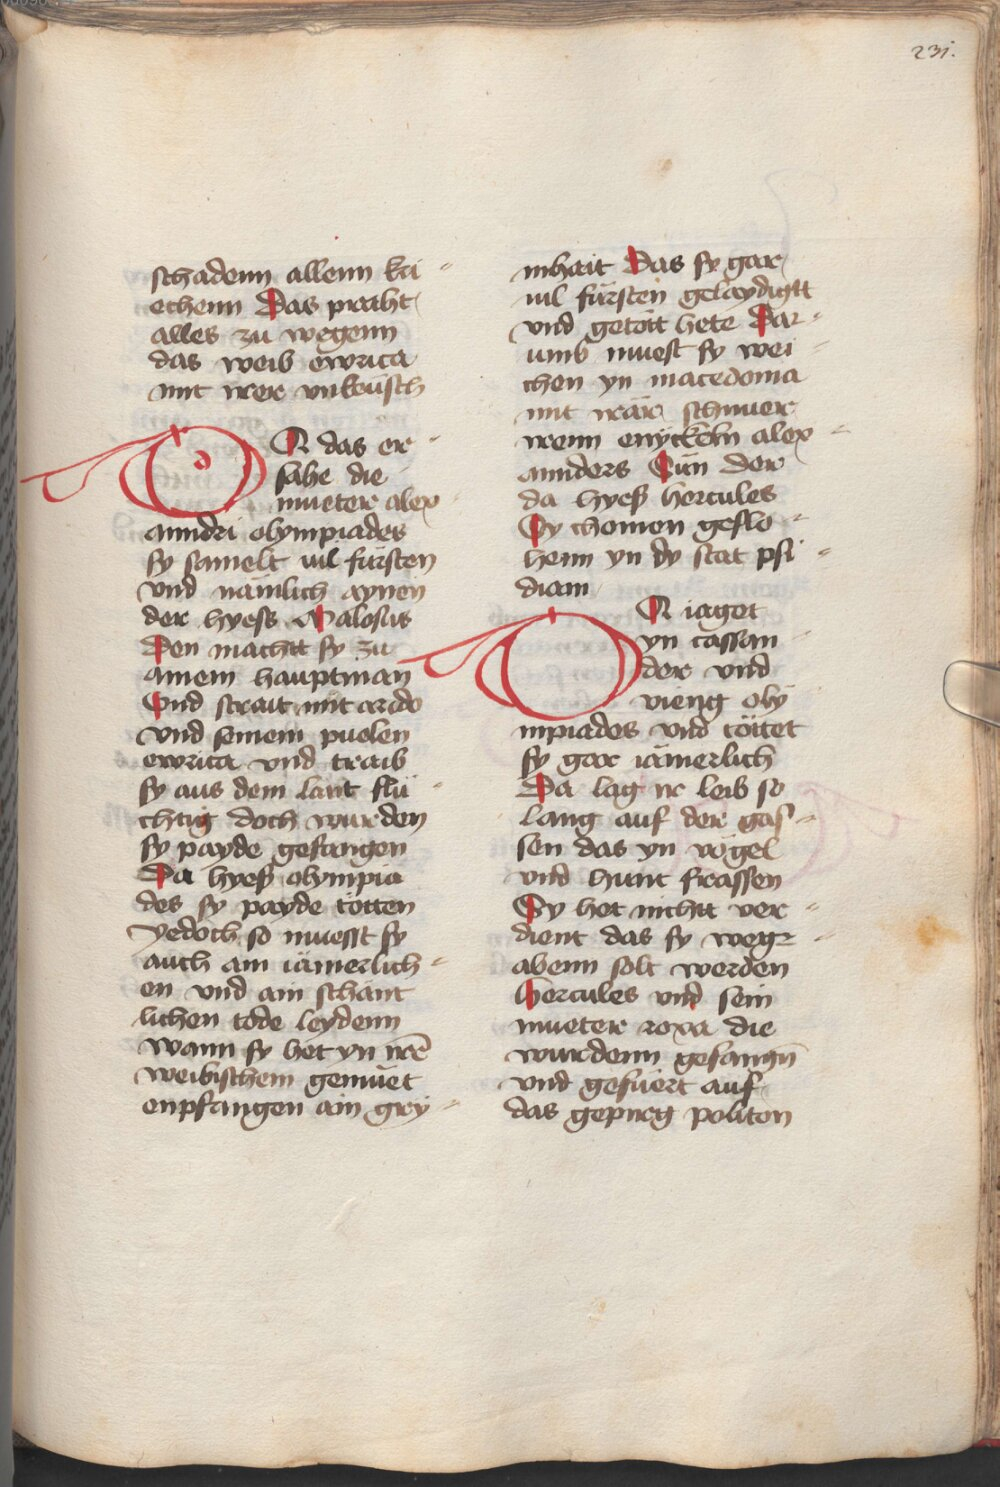 231.
schadenn allenn kri
echenn Das pracht
alles zu wegenn
das weib ewrica
mit irer vnkeüsch
DA das er
sahe die
mueter alex
anndri olympiades
sy samelt uil fürsten
vnd nämlich aynen
der hyess Malosus
Den macht sy zu
ainem hauptman
Vnd strait mit arido
vnd seinem puelen
ewrica vnd traib
sy aus dem lant flü
chtig doch wurden
sy payde gefangen
Da hyess olympia
des sy payde tötten
yedoch so muesst sy
auch ain iämerlich
en vnd ain schänt
lichen tode leydenn
wann sy het yn irē
weibischem gemüet
enpfangen ain gry
mhait Das sy gar
uil fürsten gelaydigtt
vnd getött hete Dar
umb muest sy wei
chen yn macedonia
mit irär schnuer
irenn enyckeln alex
annders Sün der
da hyess hercules
Sy chomen geflo
henn yn dy stat psi
diam
DA iaget
yn cassan
der vnd
vieng oly
mpiades vnd töttet
sy gar iämerlich
Da lag ir leib so
lang auf der gas
sen das yn vögel
vnd hunt frassen
Sy het nichtt ver
dient das sy wegr
abenn solt werden
Hercules vnd sein
mueter roxa die
wurdenn gefangn̄
vnd gefüert auf
das gepirg politon